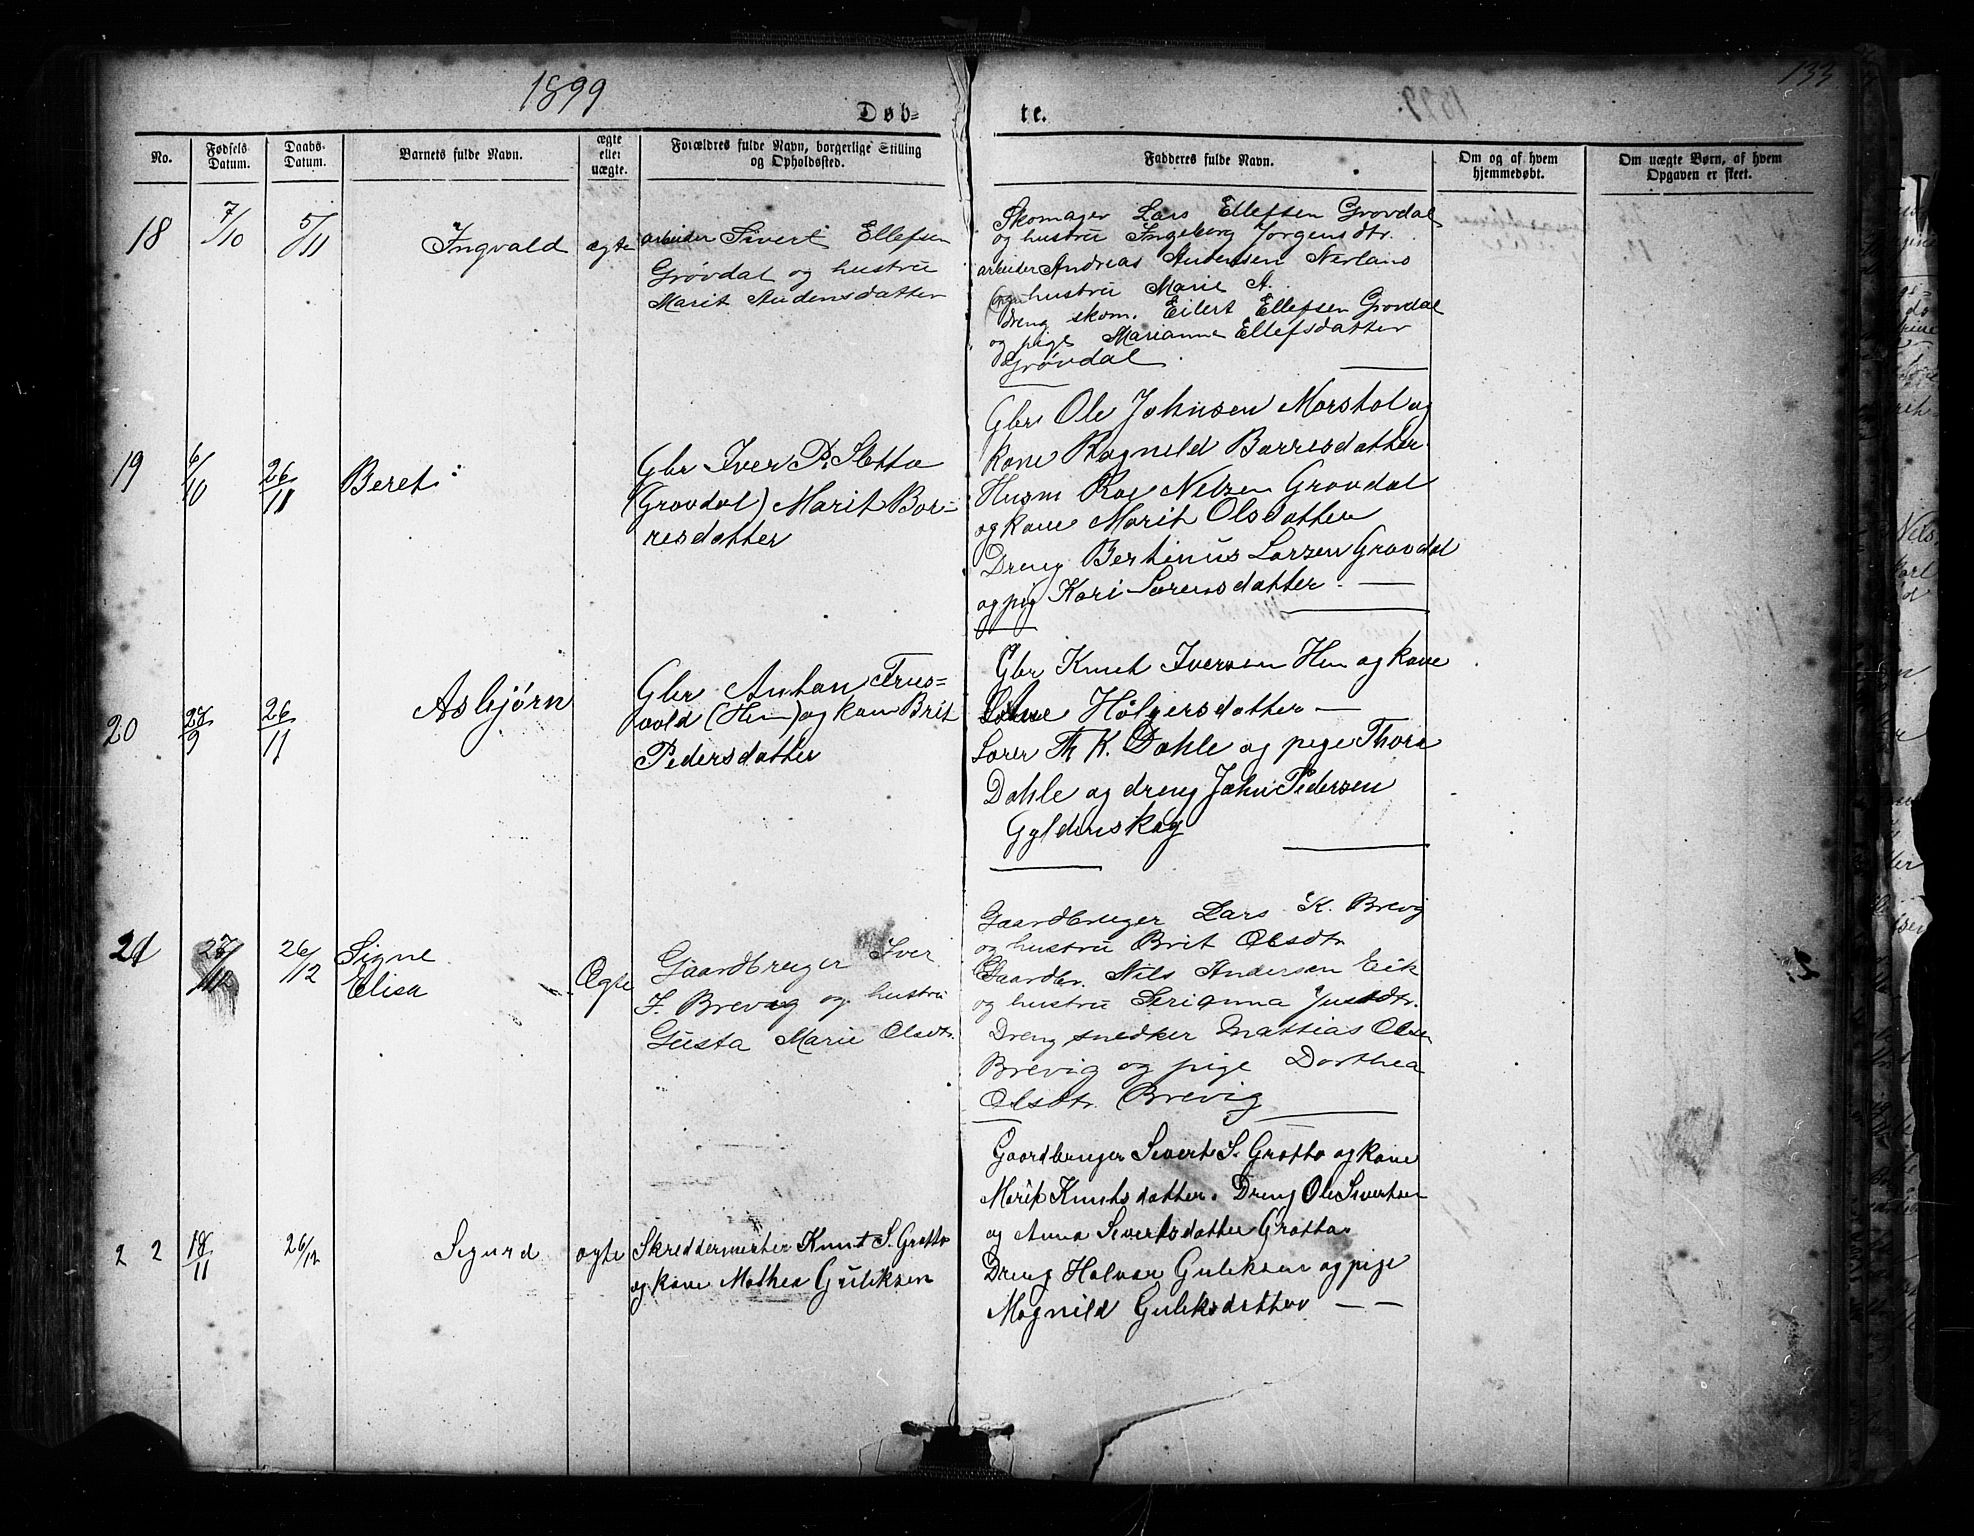 1899
133
Døb-
te.
No.
Fødsels Datum.
Daabs-Datum.
Barnets fulde Navn.
ægte eller uægte.
Forældres fulde Navn, borgerlige Stilling og Opholdssted.
Fadderes fulde Navn.
Om og af hvem hjemmedøbt.
Om uægte Børn, af hvem Opgaven er skeet.
18 7/10 5/11 Ingvald ægte
arbeider Sivert Ellefsen
Grøvdal og hustru
Marit Andersdatter
Skomager Lars Ellefsen Grovdal
og hustru Ingeborg Jorgensdtr.
arbeider Andreas Andersen Nerland
og hustru Marie A.
dreng skom. Eilert Ellefsen Grovdal
og pige Marianne Ellefsdatter
Grøvdal
19 6/10 26/11 Beret
Gbr Iver P. Sletta
(Grovdal) Marit Bor-
resdatter
Gbr Ole Johnsen Morstol og
kone Ragnild Borresdatter
Husm Roe Nelzen Grovdal
og kone Marit Olsdatter
Dreng Bertinus Larzen Grovdal
og pig Kari Sorensdatter
20 27/9 26/11 Asbjørn
Gbr Anton Trus-
vold (Hen) og kone Brit
Pedersdatter
Gbr Knut Iversen Hen og kone
Holgersdatter
Lorer Th K. Dahle og pige Thora
Dahle og dreng John Pedersen
Gyldenskog
21 26/12 Signe
Elisa
Ægte
Gaardbruger Iver
I. Brevig og hustru
Gusta Marie Olsdtr.
Gaardbruger Lars K. Brevig
og hustru Brit Olsdtr
Gaardbr. Nils Andersen Eik
og hustru Serianna Justdtr.
Dreng snedker Mattias Olsen
Brevig og pige Dorthea
Olsdtr. Brevig
22 18/11 26/12 Sigurd ægte
Skreddermester Knut S. Grotta
og kone Mathea Guliksen
Gaardbruger Sivert S. Grotta og kone
Marit Knutsdatter. Dreng Ole Sivertsen
og Anna Sivertsdatter Grotta.
Dreng Halvor Guleksen og pige
Magnild Guleksdatter